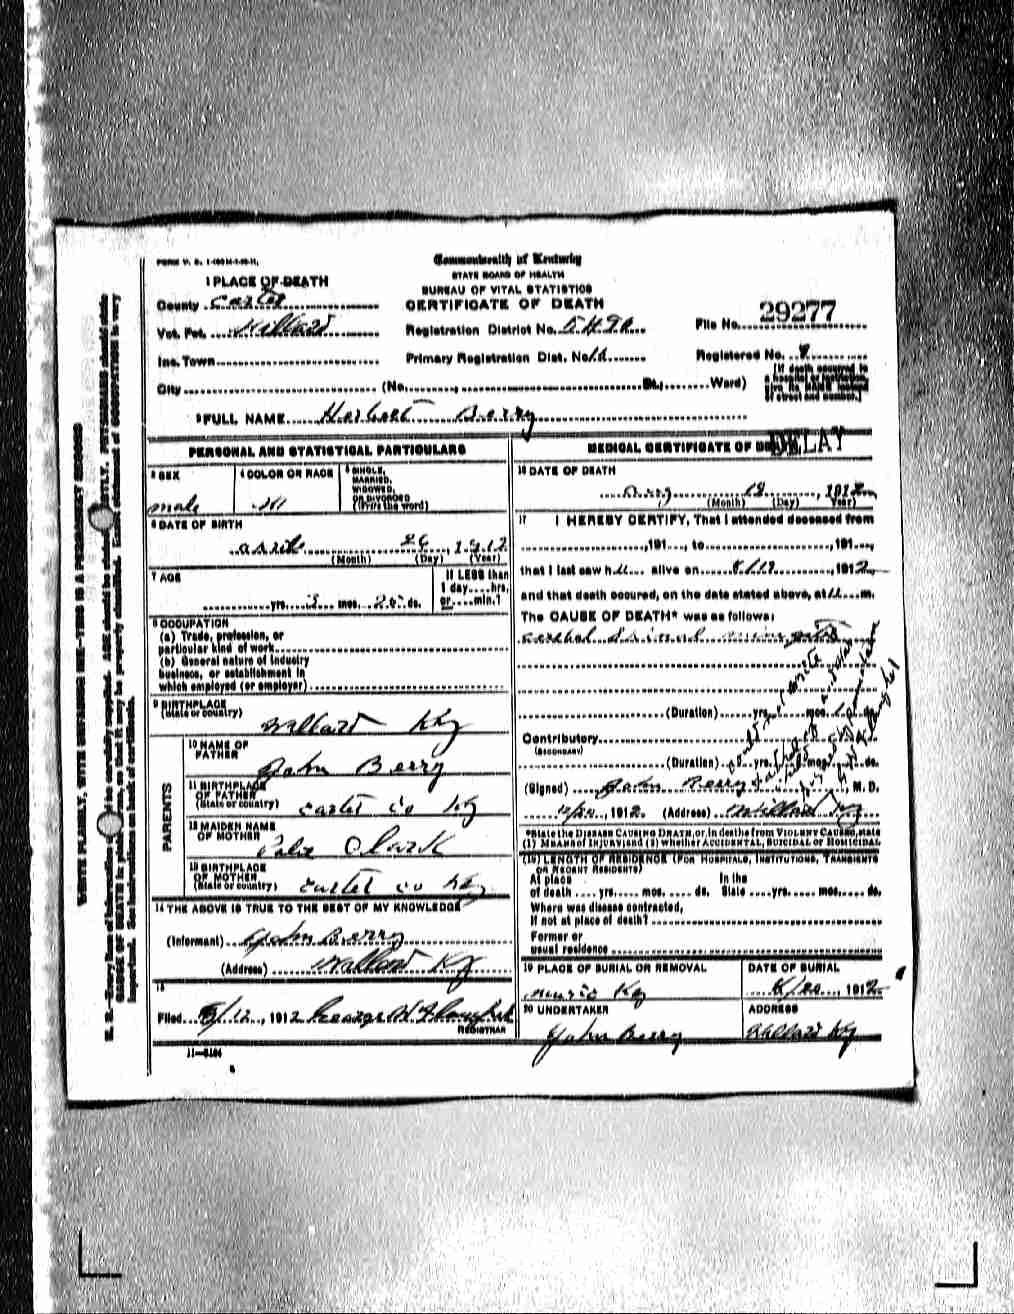 FORM V. S. 1
Commonwealth of Kentucky
STATE BOARD OF HEALTH
BUREAU OF VITAL STATISTICS
CERTIFICATE OF DEATH
1 PLACE OF DEATH
County Carter
Vot. Pct. Willard
Registration District No.
File No. 29277
Inc. Town
Primary Registration Dist. No.
Registered No. 8
[If death occurred in a hospital or institution, give its NAME instead of street and number.]
City (No. , St.; Ward)
2 FULL NAME Herbert Berry
PERSONAL AND STATISTICAL PARTICULARS
3 SEX
male
4 COLOR OR RACE
W
5 SINGLE, MARRIED, WIDOWED, OR DIVORCED (Write the word)
6 DATE OF BIRTH
April 26, 1912
(Month) (Day) (Year)
7 AGE
yrs. 3 mos. 25 ds.
If LESS than 1 day....hrs. or....min.?
8 OCCUPATION
(a) Trade, profession, or
particular kind of work
(b) General nature of industry
business, or establishment in
which employed (or employer)
9 BIRTHPLACE
(State or country)
Willard Ky
PARENTS
10 NAME OF FATHER
John Berry
11 BIRTHPLACE OF FATHER
(State or country)
Carter Co Ky
12 MAIDEN NAME OF MOTHER
Clark
13 BIRTHPLACE OF MOTHER
(State or country)
Carter Co Ky
14 THE ABOVE IS TRUE TO THE BEST OF MY KNOWLEDGE
(Informant) John Berry
(Address) Willard Ky
15
Filed /12, 1912 George
REGISTRAR
11—5184
MEDICAL CERTIFICATE OF DEATH
DELAY
16 DATE OF DEATH
Aug 18, 1912
(Month) (Day) (Year)
17 I HEREBY CERTIFY, That I attended deceased from
, 191 , to , 191 ,
that I last saw h alive on 8/18, 1912
and that death occured, on the date stated above, at m.
The CAUSE OF DEATH* was as follows:
spinal
(Duration) yrs. mos. ds.
Contributory
(SECONDARY)
(Duration) yrs. mos. ds.
(Signed) John Berry, M. D.
, 1912 (Address) Willard Ky
*State the DISEASE CAUSING DEATH, or, in deaths from VIOLENT CAUSES, state
(1) MEANS of INJURY; and (2) whether ACCIDENTAL, SUICIDAL or HOMICIDAL
(18) LENGTH OF RESIDENCE (FOR HOSPITALS, INSTITUTIONS, TRANSIENTS
OR RECENT RESIDENTS)
At place of death yrs. mos. ds. In the State yrs. mos. ds.
Where was disease contracted,
if not at place of death?
Former or
usual residence
19 PLACE OF BURIAL OR REMOVAL
Music Ky
DATE OF BURIAL
8/20, 1912
20 UNDERTAKER
John Berry
ADDRESS
Willard Ky
WRITE PLAINLY, WITH UNFADING INK—THIS IS A PERMANENT RECORD
N. B.—Every item of information should be carefully supplied. AGE should be stated EXACTLY. PHYSICIANS should state
CAUSE OF DEATH in plain terms, so that it may be properly classified. Exact statement of OCCUPATION is very
important. See instructions on back of certificate.